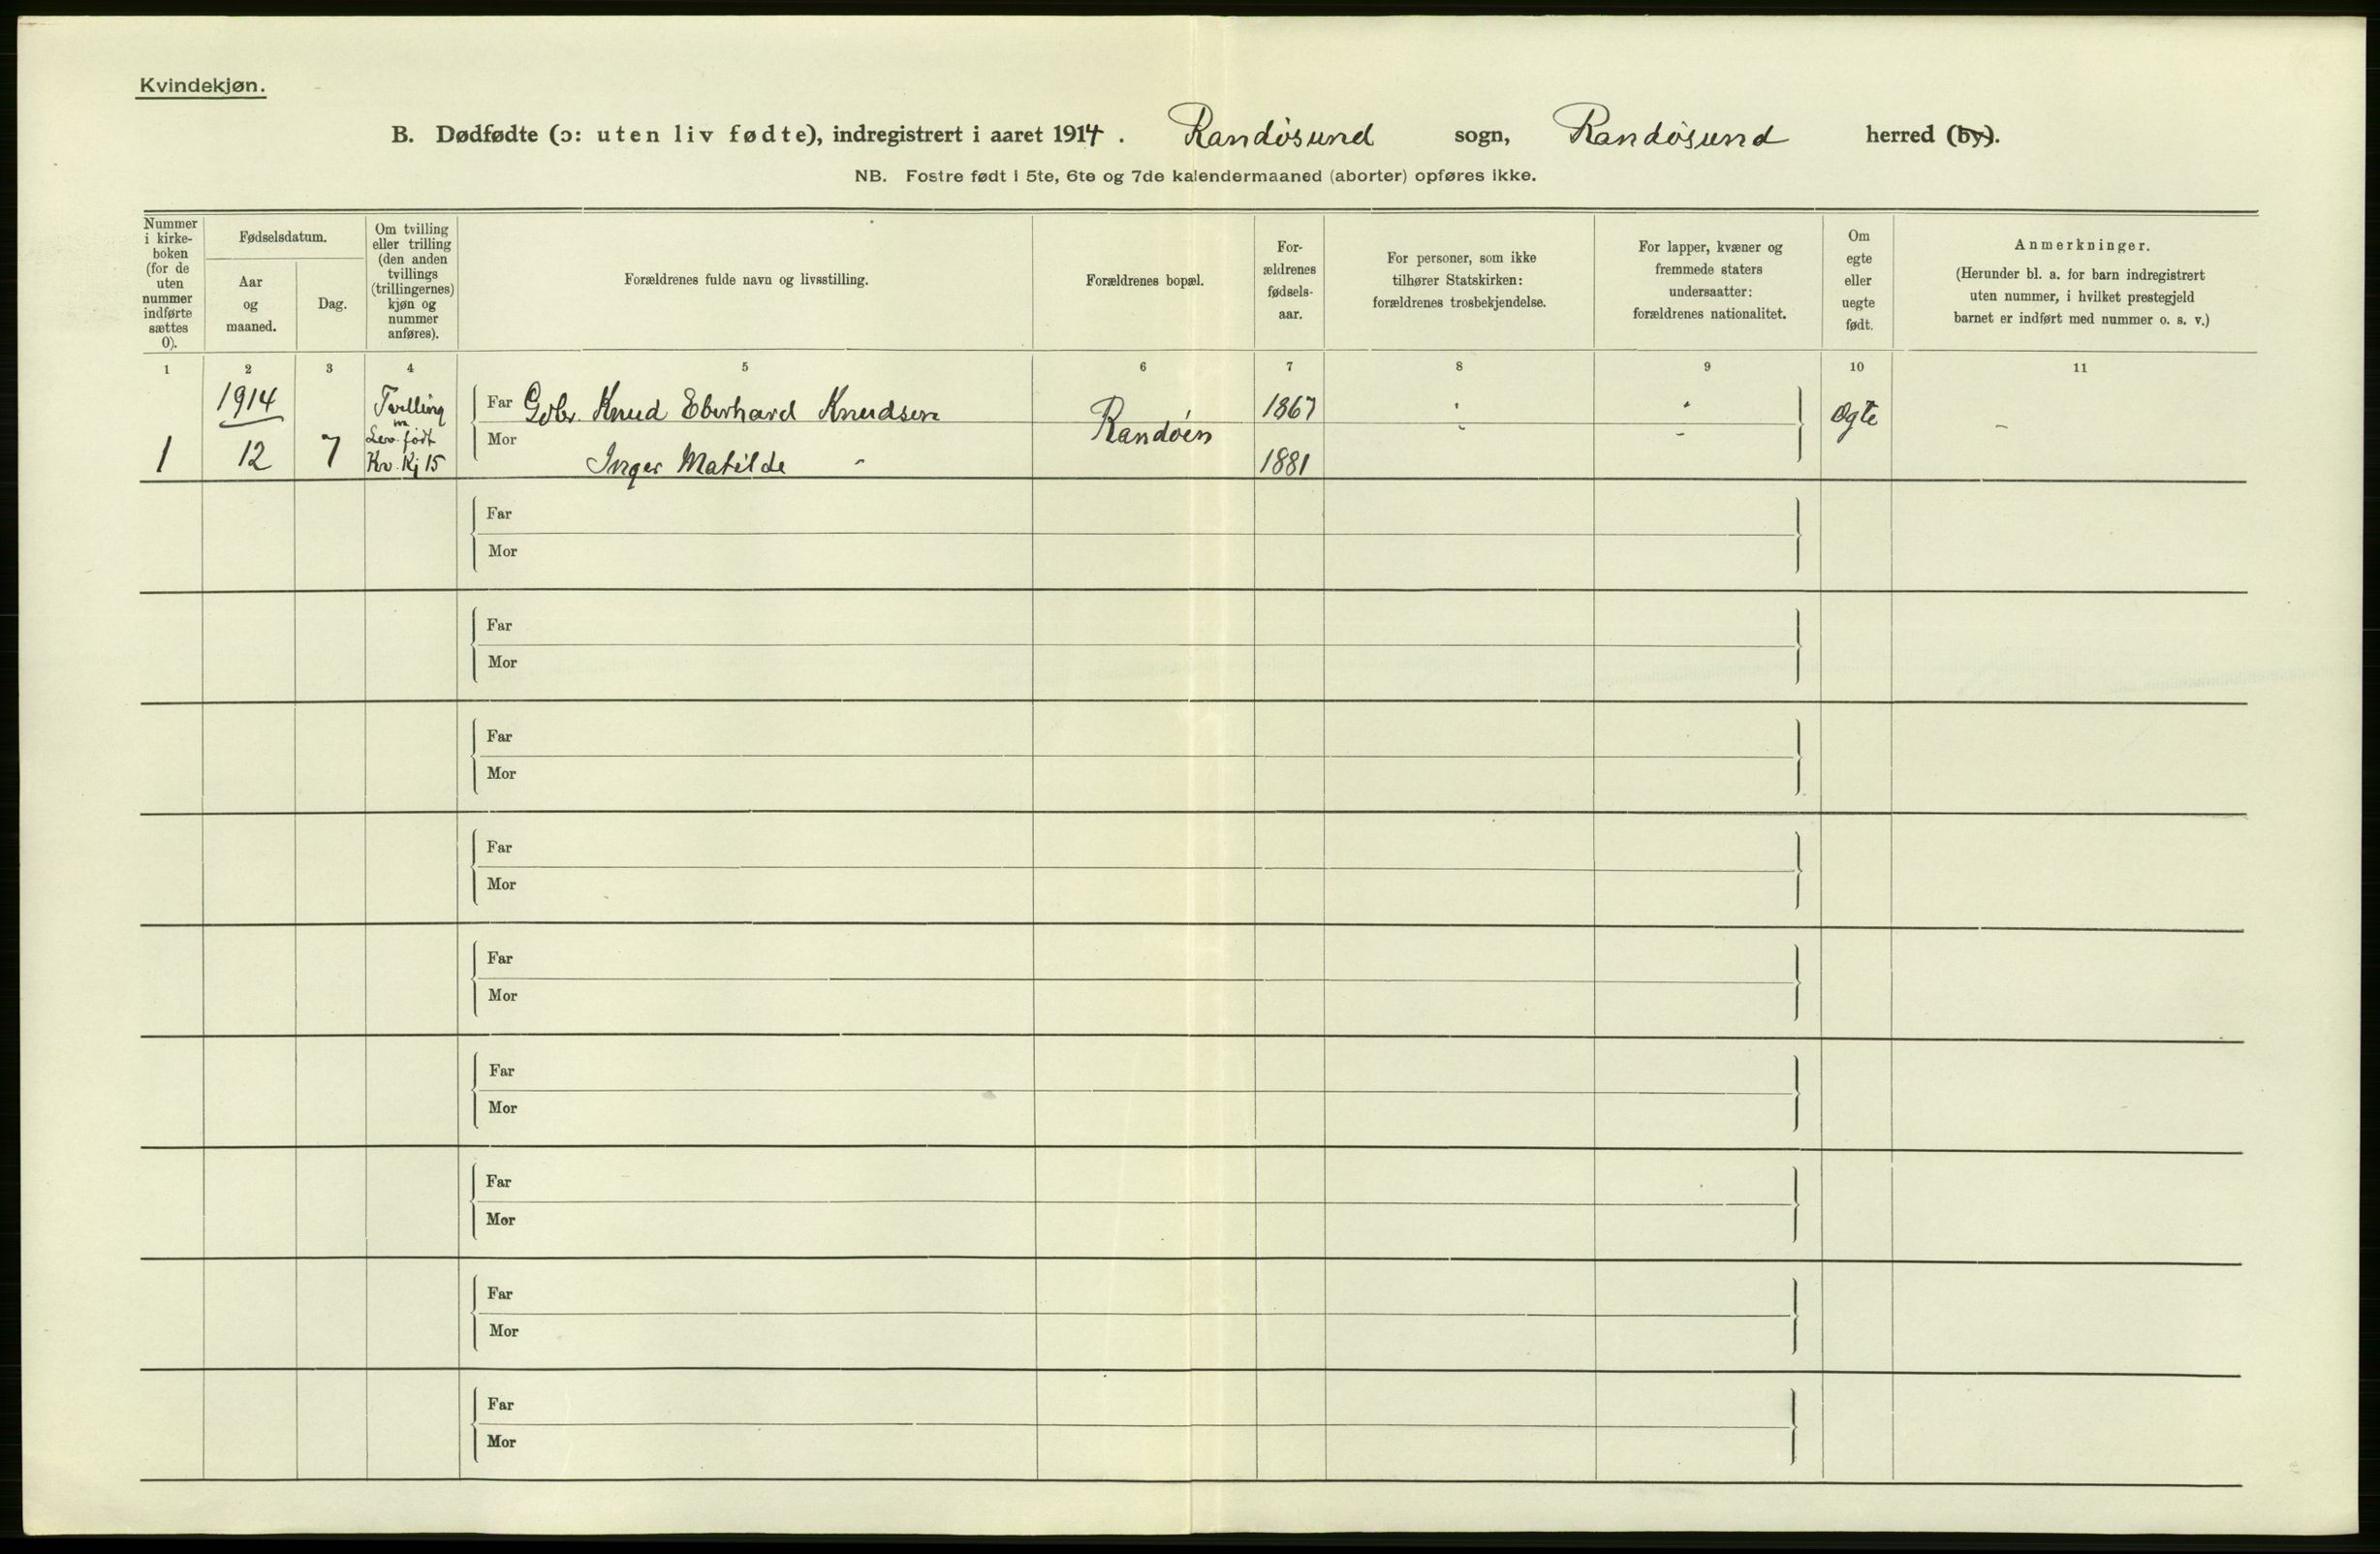 Kvindekjøn.
B. Dødfødte (ɔ: uten liv fødte), indregistrert i aaret 1914. Randøsund sogn, Randøsund herred (by).
NB. Fostre født i 5te, 6te og 7de kalendermaaned (aborter) opføres ikke.
Nummer
i kirke-
boken
(for de
uten
nummer
indførte
sættes
0).
Fødselsdatum.
Aar
og
maaned.
Dag.
Om tvilling
eller trilling
(den anden
tvillings
(trillingernes)
kjøn og
nummer
anføres).
Forældrenes fulde navn og livsstilling.
Forældrenes bopæl.
For-
ældrenes
fødsels-
aar.
For personer, som ikke
tilhører Statskirken:
forældrenes trosbekjendelse.
For lapper, kvæner og
fremmede staters
undersaatter:
forældrenes nationalitet.
Om
egte
eller
uegte
født.
Anmerkninger.
(Herunder bl. a. for barn indregistrert
uten nummer, i hvilket prestegjeld
barnet er indført med nummer o. s. v.)
1 2 3 4 5 6 7 8 9 10 11
1914
1 12 7
Tvilling
m
Lev. født
Kv. Kj 15
Far Gbr. Knud Eberhard Knudsen
Mor
Inger Matilde -
Randøen
1867
1881
Ogte
-
Far
Mor
Far
Mor
Far
Mor
Far
Mor
Far
Mor
Far
Mor
Far
Mor
Far
Mor
Far
Mor